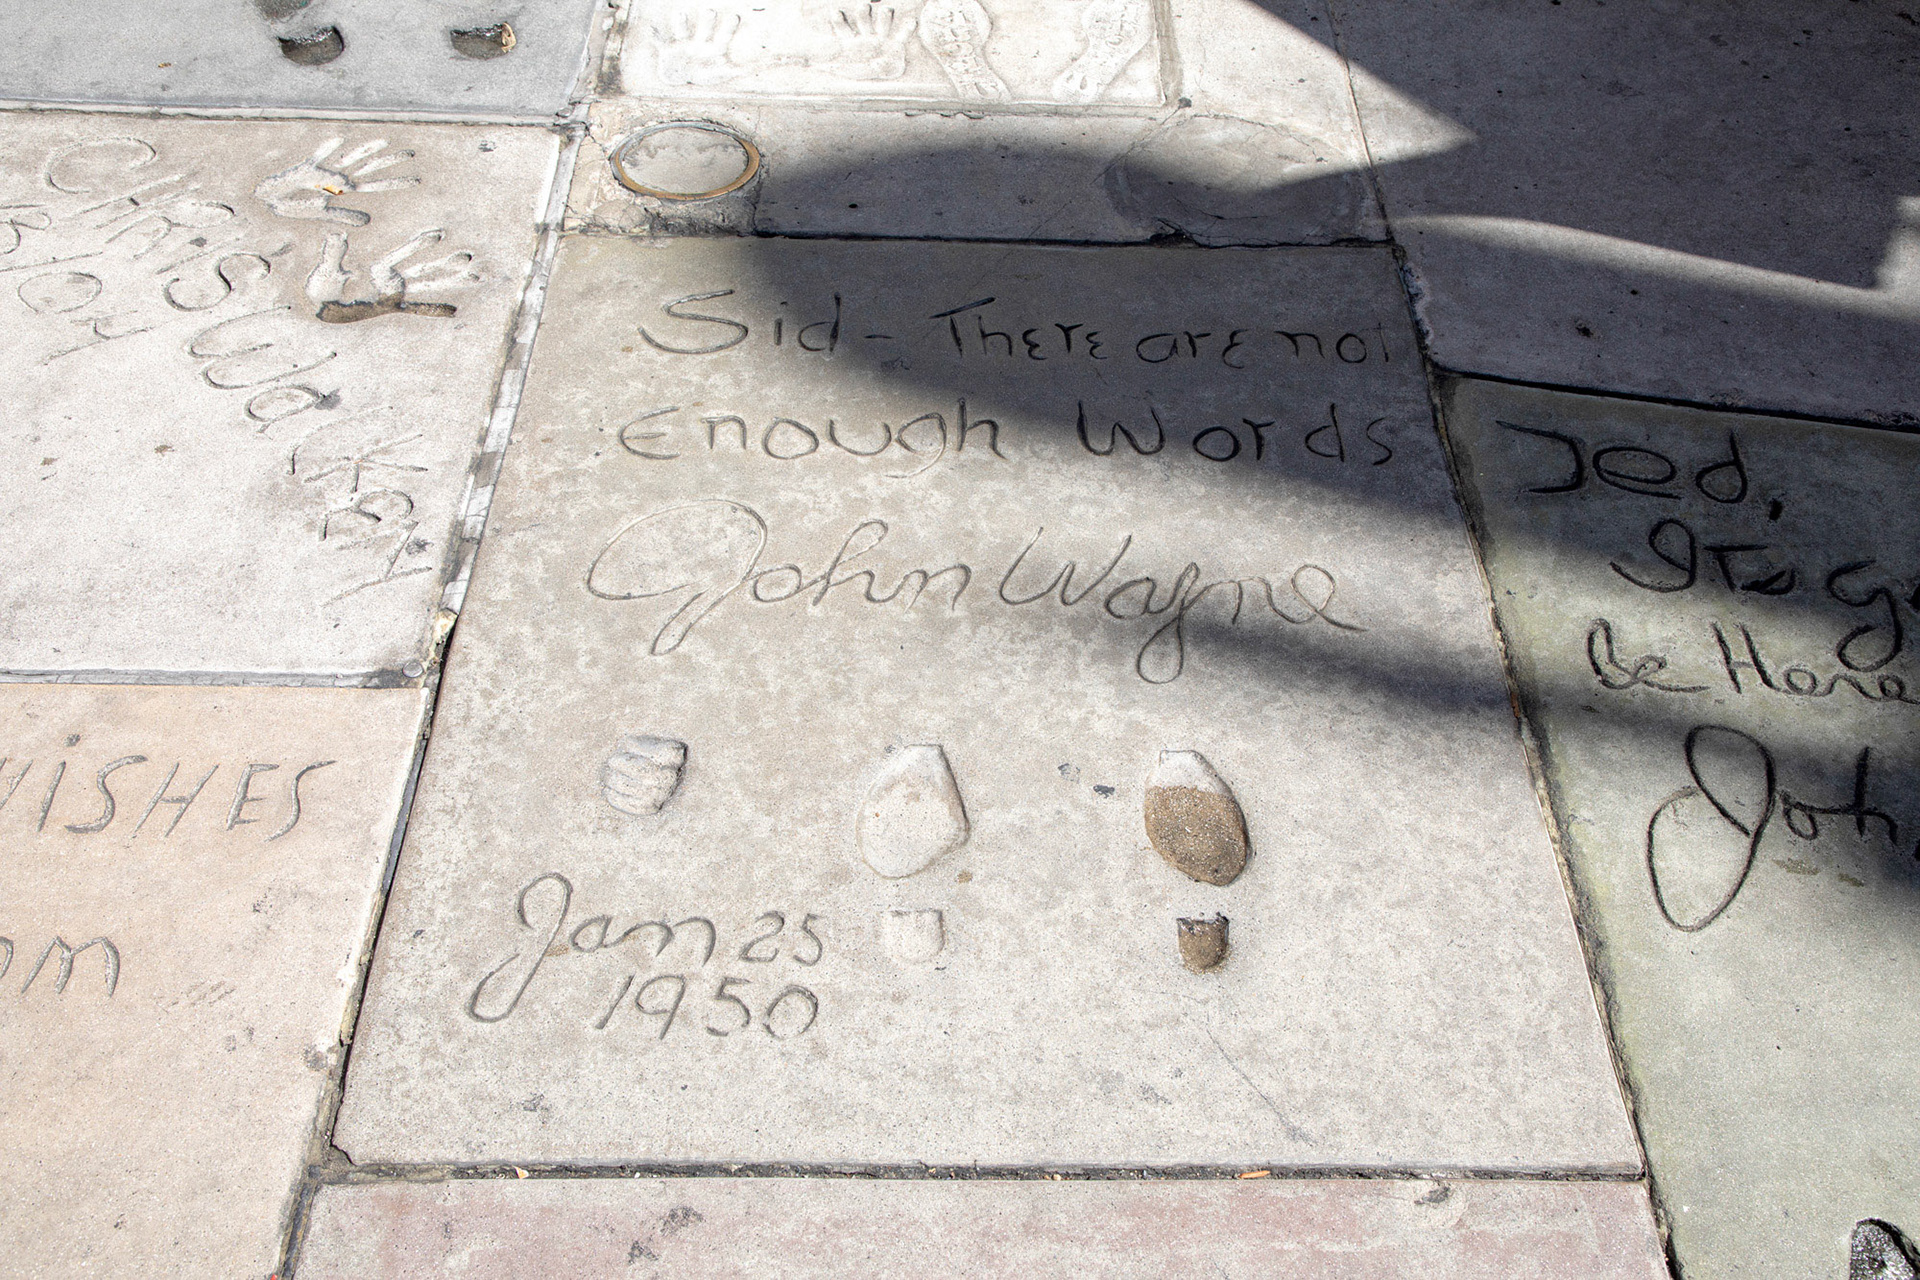 CHRIS
Walken
Sid - There are not
Enough Words
John Wayne
Jan 25
1950
WISHES
Ted,
Its
Be Here